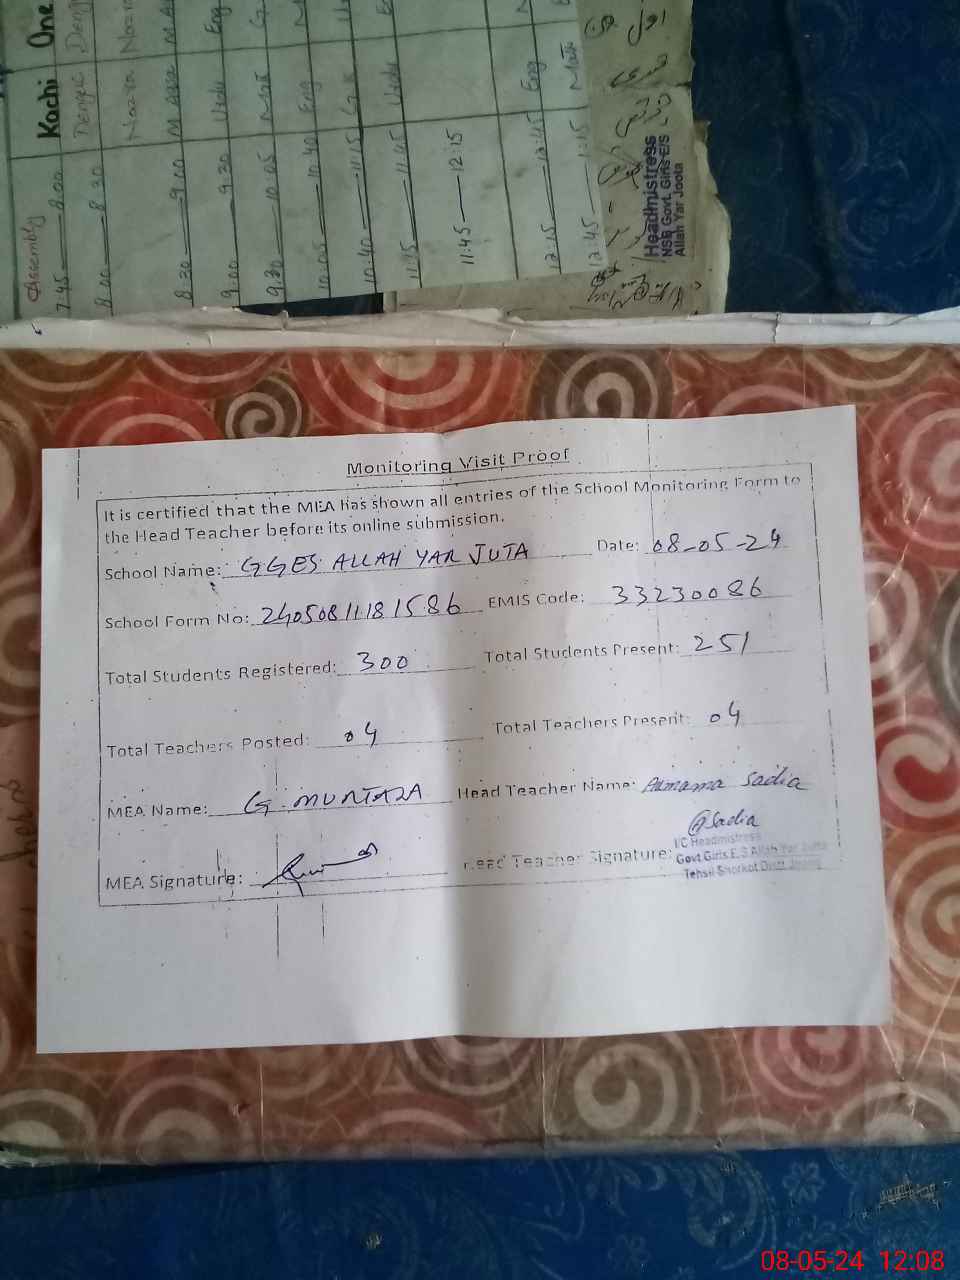 Kachi One
Assembly
7:45 — 8:00 Dengue Deng
8:00 — 8:30 Nazra Nazra
8:30 — 9:00
9:00 — 9:30 Urdu Eng
9:30 — 10:05 Math
10:05 — 10:40 Eng
10:40 — 11:15 G.K
11:15 — 11:45 Urdu
11:45 — 12:15
12:15 — 12:45 Eng
12:45 — 1:15 Math
Headmistress
NSB Govt. Girls E/S
Allah Yar Joota
Monitoring Visit Proof
It is certified that the MEA has shown all entries of the School Monitoring Form to
the Head Teacher before its online submission.
School Name: GGES ALLAH YAR JUTA Date: 08-05-24
School Form No: 24050811181586 EMIS Code: 33230086
Total Students Registered: 300 Total Students Present: 251
Total Teachers Posted: 04 Total Teachers Present: 04
MEA Name: G. MURTAZA Head Teacher Name: Aumama Sadia
Sadia
MEA Signature: Head Teacher Signature:
I/C Headmistress
Govt Girls E.S Allah Yar Jutta
Tehsil Shorkot Distt Jhang
08-05-24 12:08